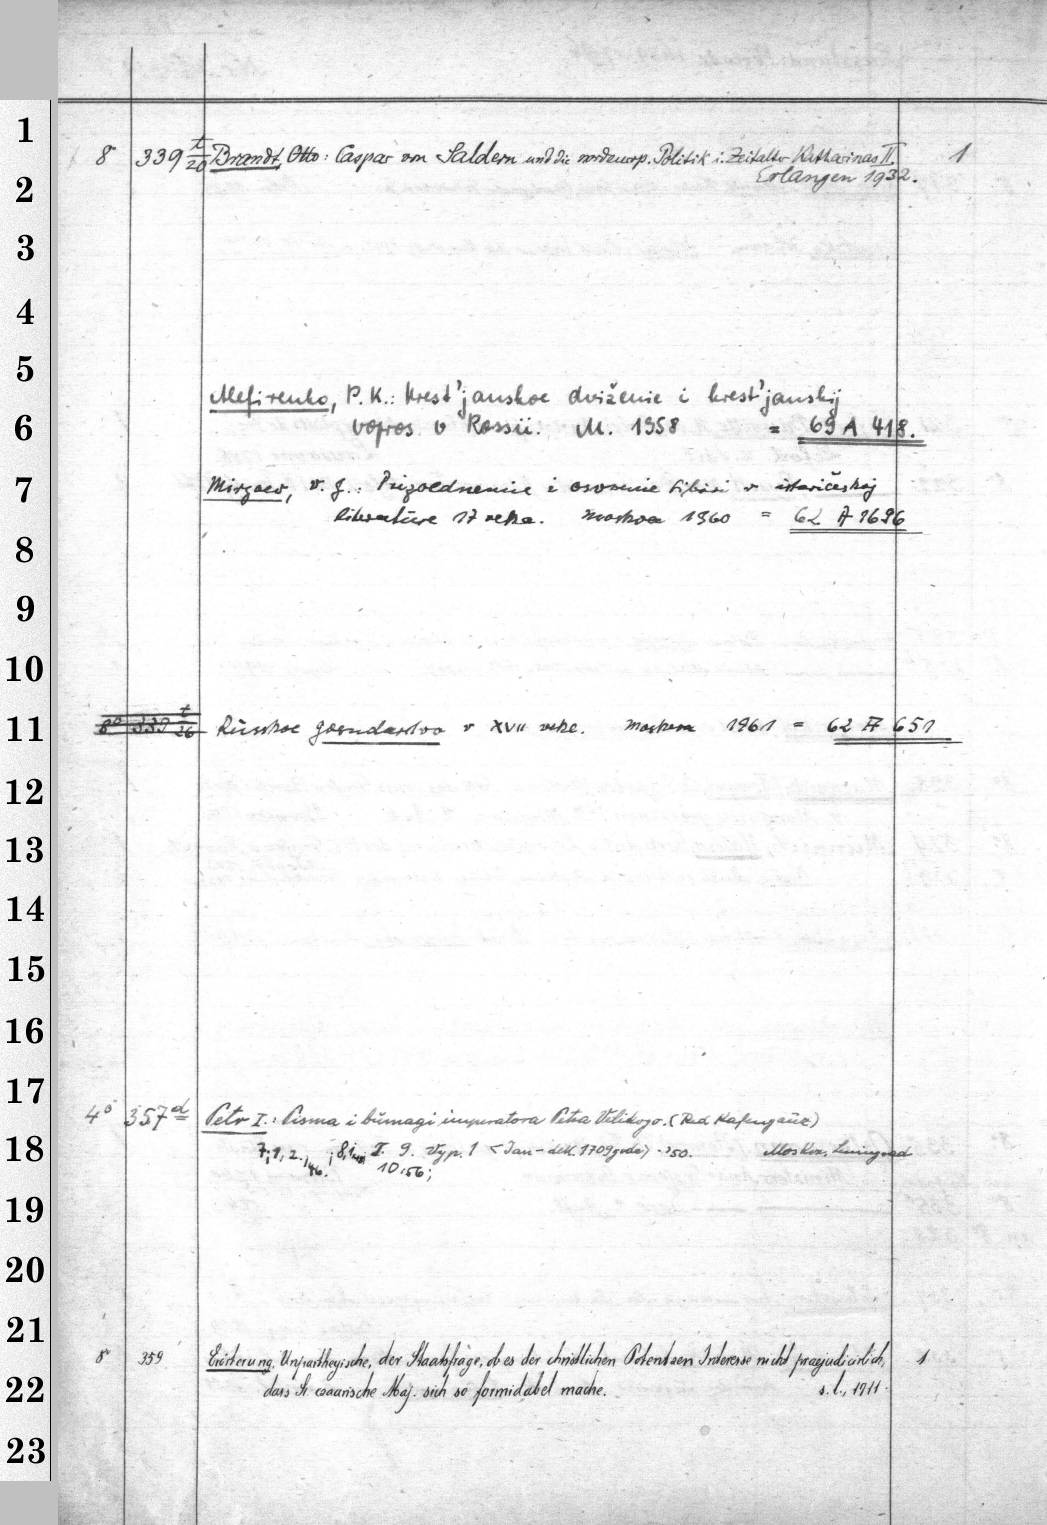 1
2
3
4
5
6
7
8
9
10
11
12
13
14
15
16
17
18
19
20
21
22
23
8° 339 t/20 Brandt, Otto: Caspar von Saldern und die nordeurop. Politik i. Zeitalter Katharinas II. 1
Erlangen 1932.
P. K.: Krest'janskoe dviženie i krest'janskij
vopros v Rossii. M. 1958 = 69 A 418.
Mirzoev, V. G.: i Sibiri v istoričeskoj
literature 17 veka. Moskva 1960 = 62 A 1696
8° 339 t/26 Russkoe gosudarstvo v XVII veke. Moskva 1961 = 62 A 651
4° 357 d Petr I.: Pisma i bumagi imperatora Petra Velikogo. (Red Kafengauz)
7,1, 2. 46. ; 8,1 I. 9. Vyp. 1 <Jan - dek. 1709 goda> 50. Moskva, Leningrad
10, 56;
8° 359 Erörterung, Unpartheyische, der Staatsfrage, ob es der christlichen Potentzen Interesse nicht praejudicirlich, 1
dass Sr. czaarische Maj. sich so formidabel mache. s. l., 1711.